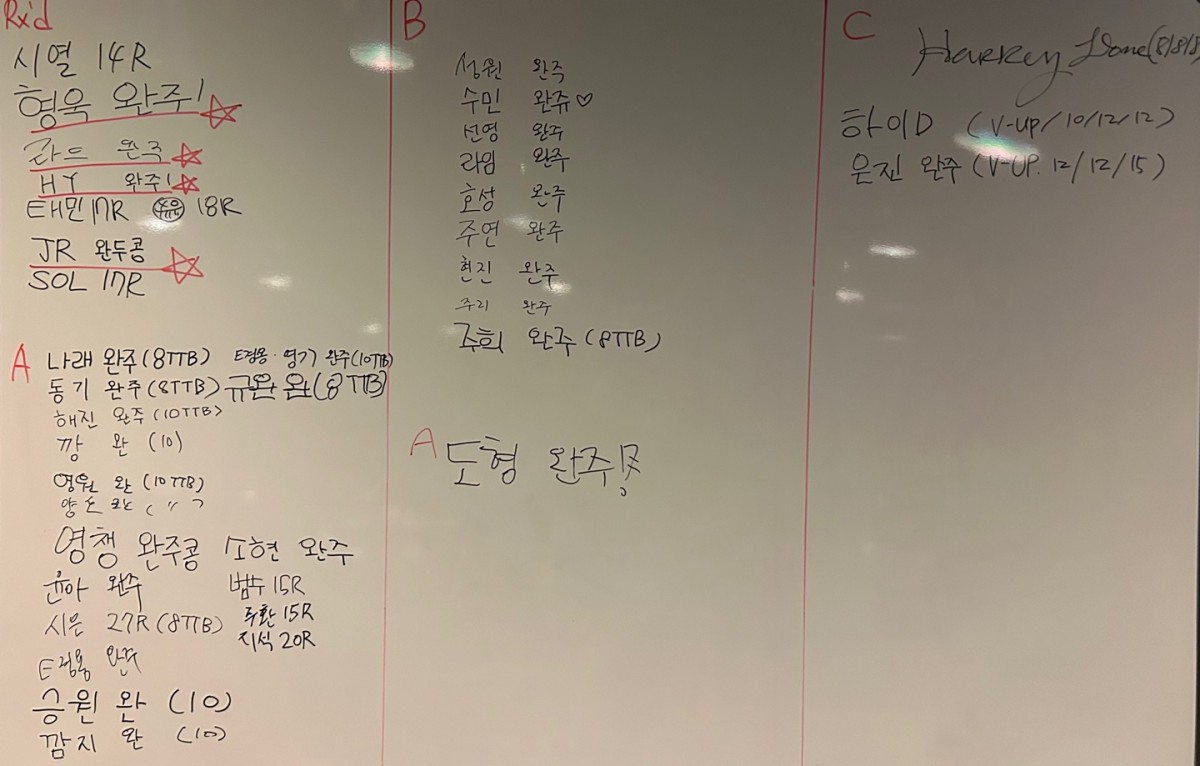 Rx'd
시열 14R
형욱 완주!
라드 완주
HY 완주!
태민 17R 18R
JR 완두콩
SOL 17R
A
나래 완주(8TTB) E경용·영기 완주(10TTB)
동기 완주(8TTB) 규완 완(8TTB)
해진 완주(10TTB)
깡 완 (10)
영원 완 (10TTB)
영챙 완주콩 소현 완주
윤아 완주 범수 15R
시은 27R(8TTB) 주환 15R
지석 20R
E경용 완주
승원 완 (10)
깜지 완 (10)
B
성원 완주
수민 완쥬♡
선영 완주
라임 완주
효성 완주
주연 완주
현진 완주
주리 완주
주희 완주(8TTB)
A
도형 완주
C
Harrey Done(8/8/8
하이D (V-up/10/12/12)
은진 완주(V-UP. 12/12/15)